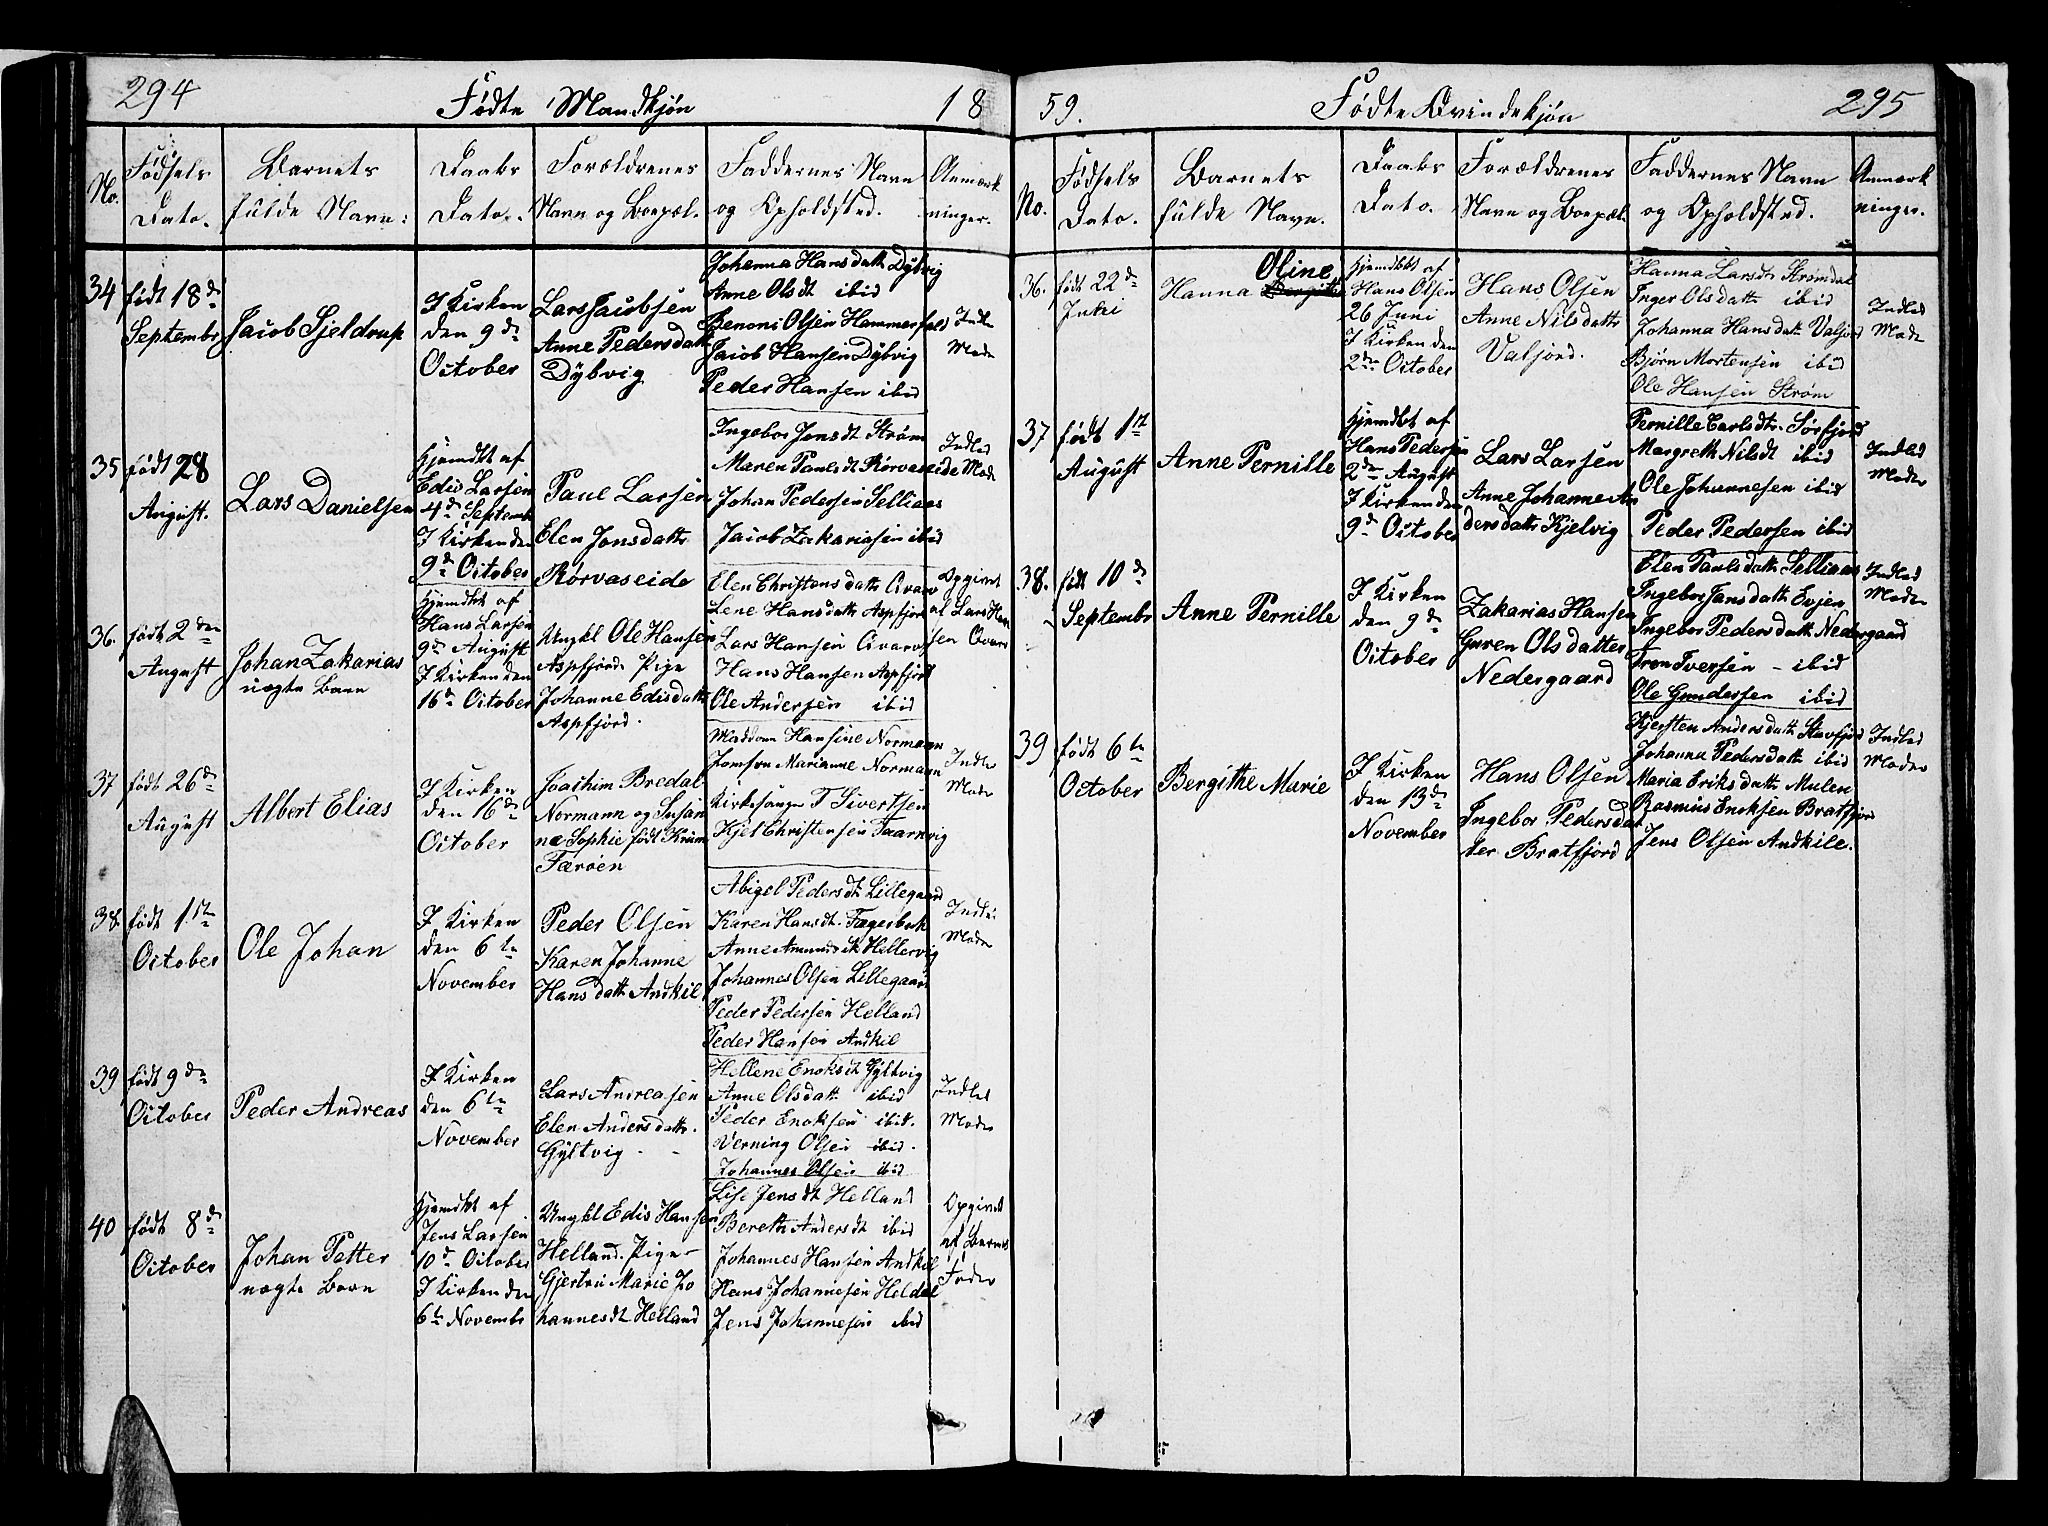 294
Fødte Mandkjøn
18
No.
Fødsels
Dato.
Barnets
fulde Navn.
Daabs
Dato.
Forældrenes
Navn og Boepæl.
Faddernes Navn
og Opholdsted.
Anmærk
ninger.
34
født 18d
Septembr
Jacob Sjeldrup
I Kirken
den 9de
October
Lars Jacobsen
Anne Pedersdatt
Dybvig
Johanna Hansdatt Dybvig
Anne Olsdt ibid
Benoni Olsen Hammerfald
Jacob Hansen Dybvig
Peder Hansen ibid
Indle
Mode
35
født 28
August.
Lars Danielsen
Hjemdbt af
Edis Larsen
4de Septemb
I Kirken den
9de October
Paul Larsen
Elen Jonsdatts
Rørvaseide
Ingebor Jensdt Strøm
Maren Paulsdt Rørvaseide
Johan Pedersen Selliaas
Jacob Zakariasen ibid
Indled
Mod
36.
født 2den
August
Johan Zakarias
uægte Barn
Hjemdbt af
Hans Larsen
9de August
I Kirken den
16de October
Ungkl Ole Hansen
Aspfjord. Pige
Johanne Edisdatt
Aspfjord.
Elen Christensdatt Qvarv
Lene Hansdatt Aspfjord
Lars Hansen Qvarv
Hans Hansen Aspfjord
Ole Andersen ibid
Opgivet
af Lars Han
sen Qvarv
37
født 26d
August
Albert Elias
I Kirken
den 16de
October
Joachim Bredal
Normann og Susan
næ Sophie født Krum
Færøen
Maddam Hansine Normann
Jomfru Marianne Normann
Kirkesanger T Sivertsen
Kjel Christensen Taarnvig
Indle
Mode
38.
født 1ste
October
Ole Johan
I Kirken
den 6te
November
Peder Olsen
Karen Johanne
Hansdatt Andkil
Abigel Pedersdt Lillegaard
Karen Hansdt. Fagerbak
Anne Amundsdt Hellervig
Johannes Olsen Lillegaard
Peder Pedersen Helland
Peder Hansen Andkil
Indle
Mode
39
født 9de
October
Peder Andreas
I Kirken
den 6te
November
Lars Andreasen
Elen Andersdatts.
Gyltvig
Hellene Enoksdt Gyltvig
Anne Olsdatt ibid
Peder Enoksen ibid.
Verning Olsen ibid.
Johannes Olsen ibid
Indled
Moder
40
født 8de
October
Johan Petter
uægte Barn
Hjemdbt af
Jens Larsen
10de October
I Kirken den
6te Novembr
Ungkl Edis Hansen
Helland. Pige
Gjertru Marie Jo
hannesdt Helland
Lise Jensdt Helland
Bereth Andersdt ibid
Johannes Hansen Andkil
Hans Johannesen Heldal
Jens Johannesen ibid
Opgivet
af Barnets
Fader
59.
Fødte Qvindekjøn
295
No.
Fødsels
Dato.
Barnets
fulde Navn.
Daabs
Dato.
Forældrenes
Navn og Boepæl.
Faddernes Navn
og Opholdsted.
Anmærk
ninger.
36.
født 22de
Juni
Oline
Hanna Bergitte
Hjemdbt af
Hans Olsen
26 Juni
I Kirken den
2den October
Hans Olsen
Anne Nilsdatts
Valjord.
Hanna Larsdt. Strømdal
Inger Olsdatts ibid
Johanna Hansdatt. Valjord
Bjørn Mortensen ibid
Ole Hansen Strøm
Indled
Mode
37
født 1st
August
Anne Pernille
Hjemdbt af
Hans Pedersen
2den August
I Kirken den
9de October
Lars Larsen
Anne Johanne An
dersdatts Kjelvig
Pernille Carlsdt. Sørfjord
Margreth Nilsdt ibid
Ole Johannesen ibid
Peder Pedersen ibid
Indled
Moder
38.
født 10de
Septembr
Anne Pernille
I Kirken
den 9de
October
Zakarias Hansen
Guren Olsdatter
Nedergaard
Elen Paulsdatt. Selliaas
Ingebor Jansdatt Evjen
Ingebor Pedersdatt Nedergaard
Tron Iversen - ibid
Ole Gundersen ibid
Indled
Moder
39
født 6te
October
Bergithe Marie
I Kirken
den 13de
November
Hans Olsen
Ingebor Pedersdat
ter Bratfjord
Kjersten Andersdatt Stavfjord
Johanna Pedersdatt ibid
Maria Eriksdatt Mulen
Rasmus Encksen Bratfjord
Jens Olsen Andkile.
Indled
Moder